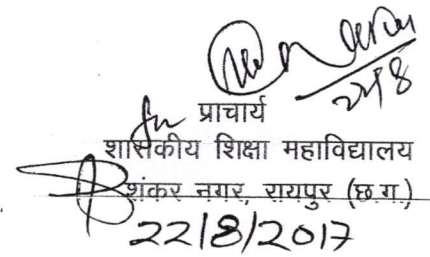 22/8
for प्राचार्य
शासकीय शिक्षा महाविद्यालय
शंकर नगर, रायपुर (छ.ग.)
22/8/2017